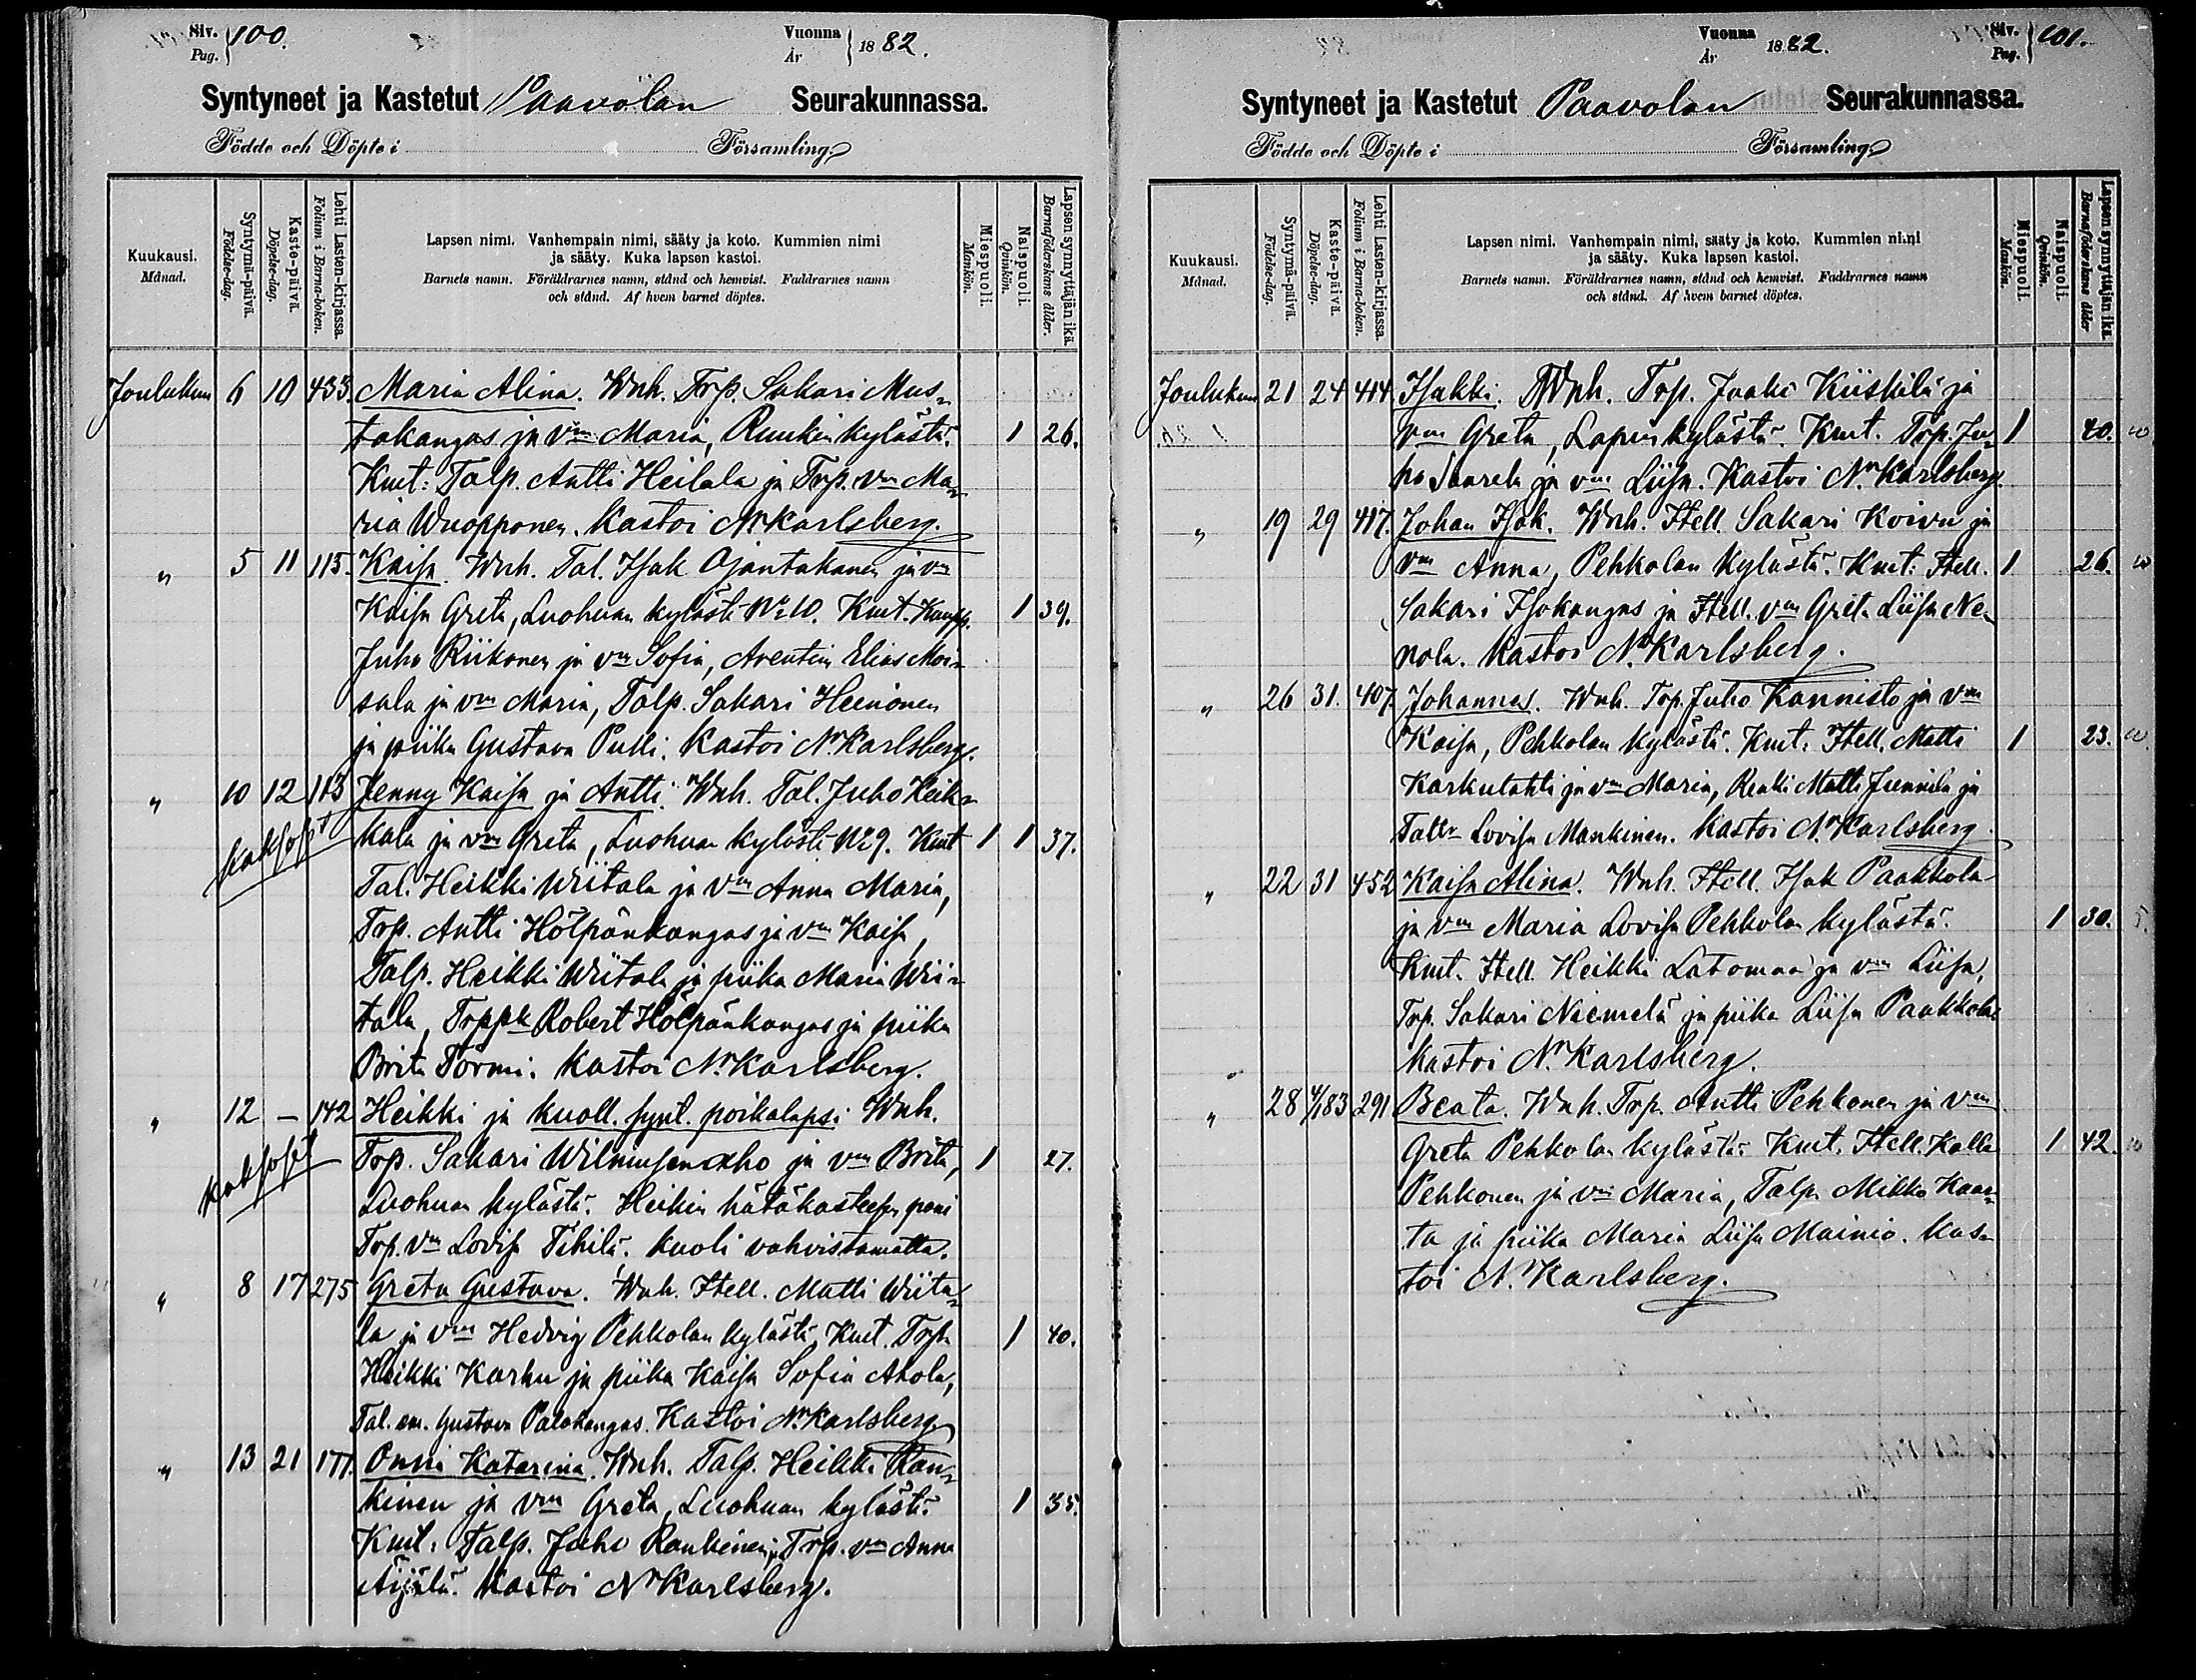 Siv. Pag. 100.
Vuonna År 1882.
Syntyneet ja Kastetut Paavolan Seurakunnassa.
Födde och Döpte i Församling
Kuukausi. Månad.
Syntymä-päivä. Födelse-dag.
Kaste-päivä. Döpelse-dag.
Lehti Lasten-kirjassa. Folium i Barna-boken.
Lapsen nimi. Vanhempain nimi, sääty ja koto. Kummien nimi
ja sääty. Kuka lapsen kastoi.
Barnets namn. Föräldrarnes namn, stånd och hemvist. Faddrarnes namn
och stånd. Af hvem barnet döptes.
Miespuoli. Mankön.
Naispuoli. Qvinkön.
Lapsen synnyttäjän ikä Barnaföderskans ålder.
Joulukuu 6 10 433. Maria Alina. Wnh. Trp. Sakari Mus-
takangas ja vm Maria, Ruukin kylästä. 1 26.
Kmt: Talp. Antti Heilala ja Trp. vm Ma-
ria Wuopponen. Kastoi Nr Karlsberg.
" 5 11 115. Kaisa. Wnh. Tal. Isak Ojantakanen ja vm
Kaisa Greta, Luohuan kylästä No 10. Kmt. Kaupp. 1 39.
Juho Riikonen ja vm Sofia, Arentin Elias Moi-
sala ja vm Maria, Talp. Sakari Heinonen
ja piika Gustava Pulli. Kastoi Nr Karlsberg.
" 10 12 113 Jenny Kaisa ja Antti. Wnh. Tal. Juho Keik-
kaksoset kala ja vm Greta, Luohuan kylästä No 9. Kmt 1 1 37.
Tal. Heikki Wiitala ja vm Anna Maria,
Trp. Antti Hölpänkangas ja vm Kaisa,
Talp. Heikki Wiitala ja piika Maria Wii-
tala, Trppk Robert Hölpänkangas ja piika
Brita Törmi. Kastoi Nr Karlsberg.
" 12 – 142 Heikki ja kuoll. synt. poikalapsi Wnh.
kaksoset Trp. Sakari Wilminsenaho ja vm Brita, 1 27.
Luohuan kylästä. Heikin hätäkasteesen pani
Trp. vm Lovisa Tihilä. Kuoli vahvistamatta.
" 8 17 275 Greta Gustava. Wnh. Itell. Matti Wiita-
la ja vm Hedvig Pehkolan kylästä, Kmt. Trp.
1 40.
Heikki Karhu ja piika Kaisa Sofia Ahola,
Tal. em. Gustava Palokangas. Kastoi Nr Karlsberg
" 13 21 177. Onni Katarina. Wnh. Talp. Heikki Ran-
kinen ja vm Greta, Luohuan kylästä. 1 35.
Kmt. Talp. Juho Rankinen ja Trp. vm Anna
Äijälä. Kastoi Nr Karlsberg.
Vuonna År 1882.
Siv. Pag. 101.
Syntyneet ja Kastetut Paavolan Seurakunnassa.
Födde och Döpte i Församling
Kuukausi. Månad.
Syntymä-päivä. Födelse-dag.
Kaste-päivä. Döpelse-dag.
Lehti Lasten-kirjassa. Folium i Barna-boken.
Lapsen nimi. Vanhempain nimi, sääty ja koto. Kummien nimi
ja sääty. Kuka lapsen kastoi.
Barnets namn. Föräldrarnes namn, stånd och hemvist. Faddrarnes namn
och stånd. Af hvem barnet döptes.
Miespuoli. Mankön.
Naispuoli. Qvinkön.
Lapsen synnyttäjän ikä. Barnaföderskans ålder
Joulukuu 21 24 414 Isakki. Wnh. Trp. Jaako Kiiskilä ja
vm Greta, Lapin kylästä. Kmt. Trp. Ju- 1 40.
ho Saarela ja vm Liisa. Kastoi Nr Karlsberg.
" 19 29 417. Johan Isak. Wnh. Itell. Sakari Koivu ja
vm Anna, Pehkolan kylästä. Kmt: Itell. 1 26.
Sakari Isokangas ja Itell. vm Greta Liisa Ne-
nola. Kastoi Nr Karlsberg.
" 26 31. 407. Johannes. Wnh. Trp. Juho Kannisto ja vm
Kaisa, Pehkolan kylästä. Kmt. Itell. Matti 1 23.
Karkulahti ja vm Maria, Renki Matti Junnila ja
Talr Lovisa Mankinen. Kastoi Nr Karlsberg
" 22 31 452 Kaisa Alina. Wnh. Itell. Isak Paakkola
ja vm Maria Lovisa Pehkolan kylästä. 1 30. 5.
Kmt. Itell. Heikki Latomaa ja vm Liisa,
Trp. Sakari Niemelä ja piika Liisa Paakkola
Kastoi Nr Karlsberg.
" 28 4/1 83 291 Beata. Wnh. Trp. Antti Pehkonen ja vm
Greta Pehkolan kylästä. Kmt. Itell. Kalle 1 42.
Pehkonen ja vm Maria, Talp. Mikko Kaar-
ta ja piika Maria Liisa Mainio. Kas-
toi Nr Karlsberg.